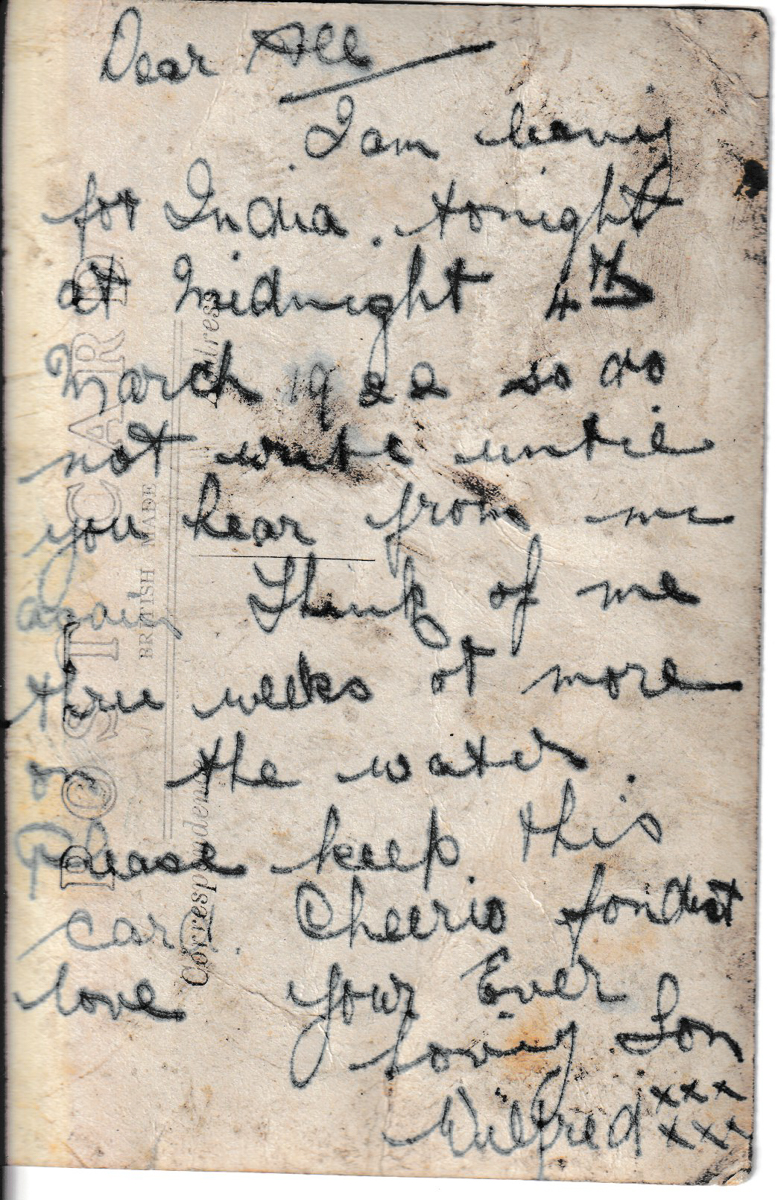 Dear All
I am leaving
for India. tonight
at Midnight 4th
March 1922 so do
not write until
you hear from me
again Think of me
three weeks or more
on the water.
Please keep this
card Cheerio fondest
love your Ever
loving Son
Wilfred xxx
xxx
POST CARD
BRITISH MADE
Correspondence
Address